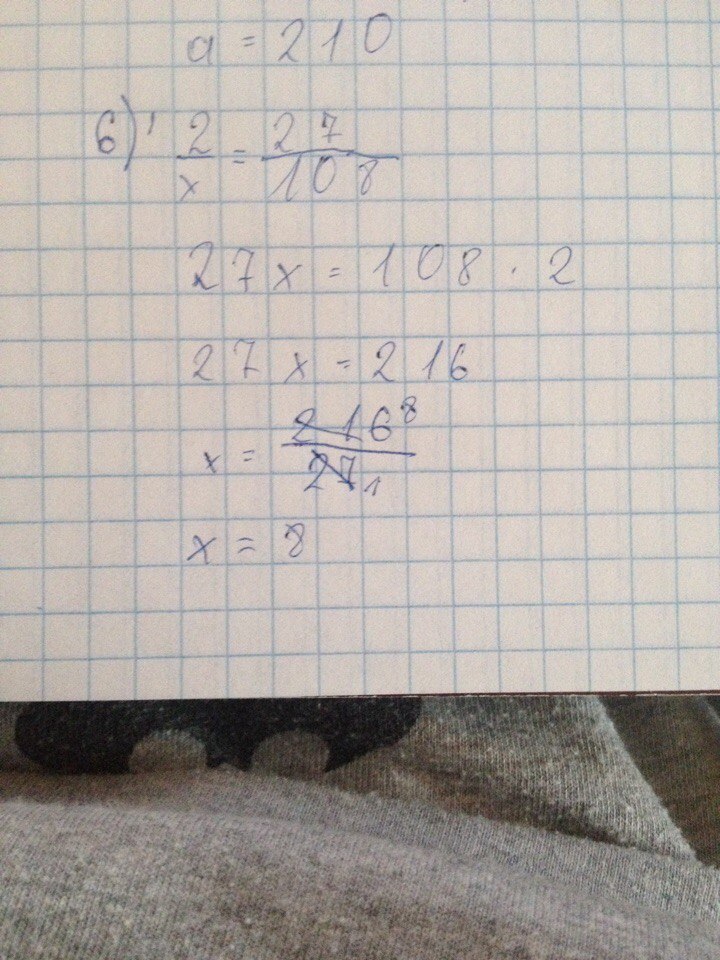 a = 210
6) 2/x = 27/108
27x = 108 · 2
27x = 216
x = 216 8/27 1
x = 8